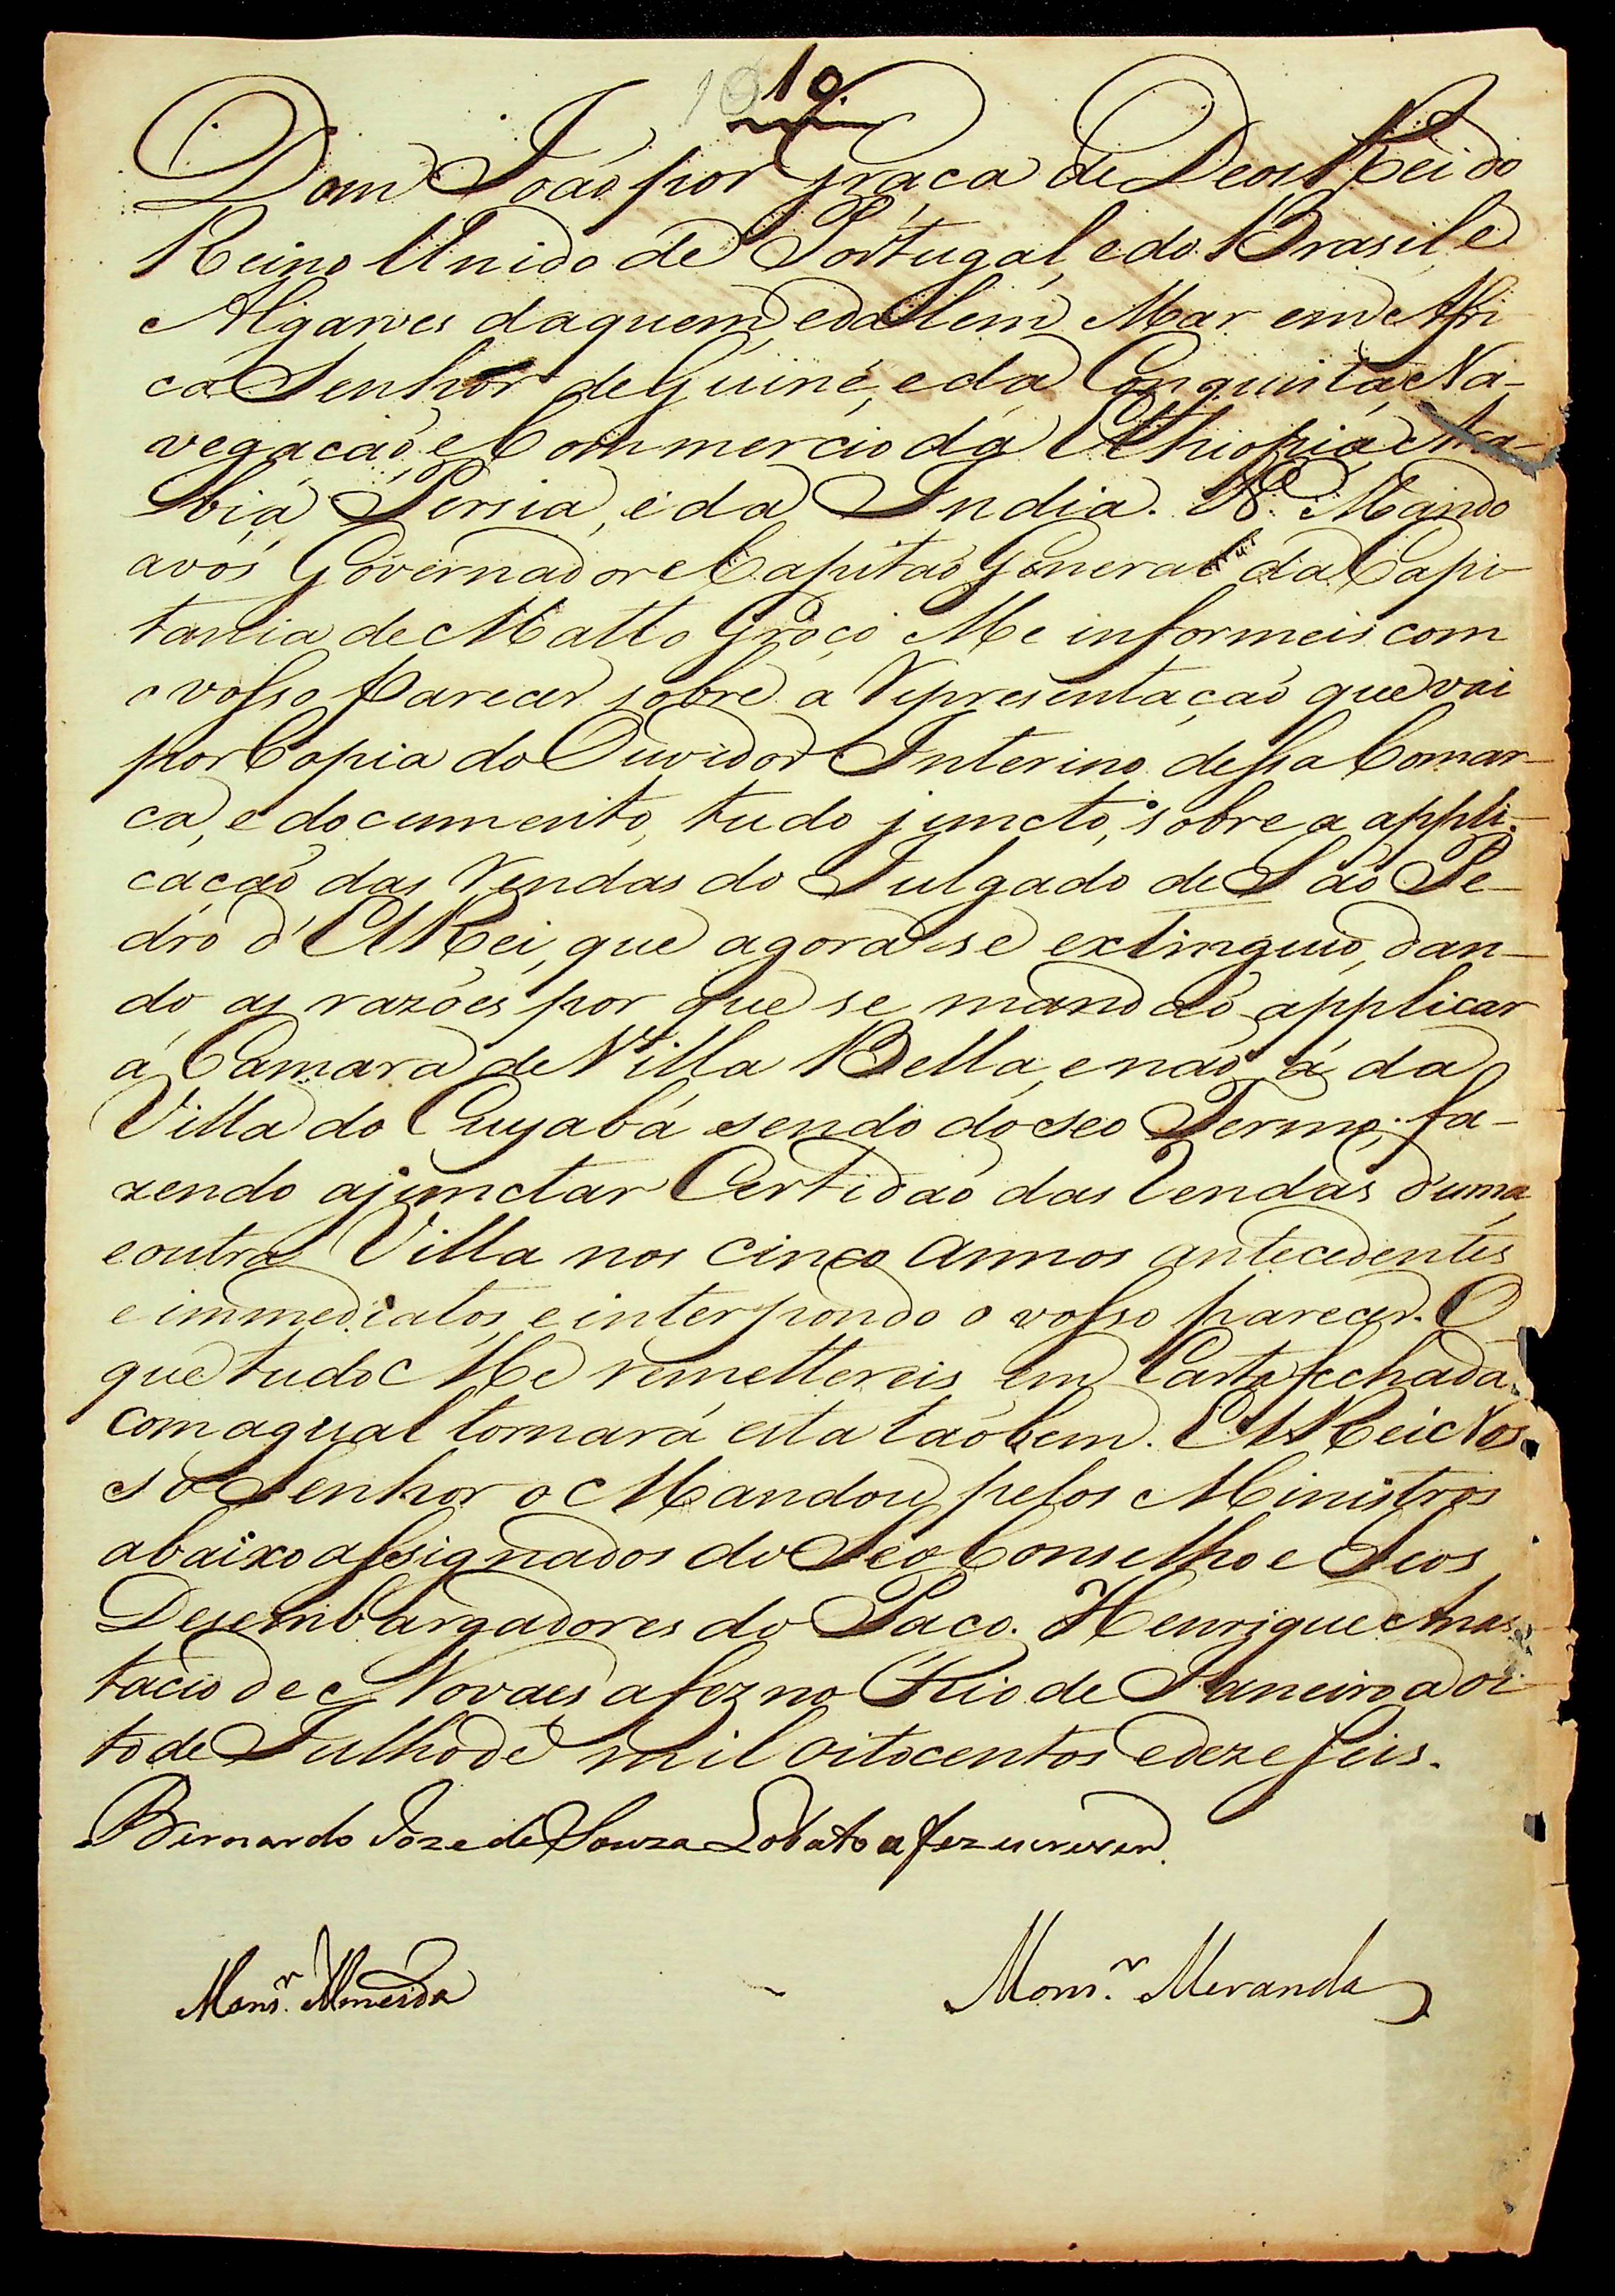 10
10
Dom João por Graça de Deos Rei do
Reino Unido de Portugal, e do Brasil, e
Algarves daquem, e dalem Mar em Afri
ca Senhor de Guiné, e da Conquista, Na-
vegação, e Commercio da Ethiopia, Ara-
bia, Persia, e da India. &. Mando
a vós Governador e Capitaõ General da Capi-
tania de Matto Groço Me informeis com
o vosso Parecer sobre a Representaçaõ que vai
por Copia do Ouvidor Interino dessa Comar-
ca, e documento, tudo juncto, sobre a appli-
caçaõ das Rendas do Julgado de Saõ Pe-
dro d'ElRei, que agora se extinguio, dan-
do as razões por que se mandaõ applicar
á Camara de Villa Bella, e naõ á da
Villa do Cuyabá sendo do seo Termo; fa-
zendo ajunctar Certidaõ das Rendas d'uma,
e outra Villa nos cinco annos antecedentes
e immediatos, e interpondo o vosso parecer. O
que tudo Me remettereis em Carta fechada,
com a qual tornará esta taõbem. ElRei Nos-
so Senhor o Mandou pelos Ministros
abaixo assignados do Seo Conselho e Seos
Desembargadores do Paço. Henrique Anas-
tacio de Novaes a fez no Rio de Janeiro a oi-
to de Julho de mil oitocentos e dezeseis.
Bernardo Joze de Souza Lobato a fez escrever.
Mons.r Almeida
Mons.r Meranda